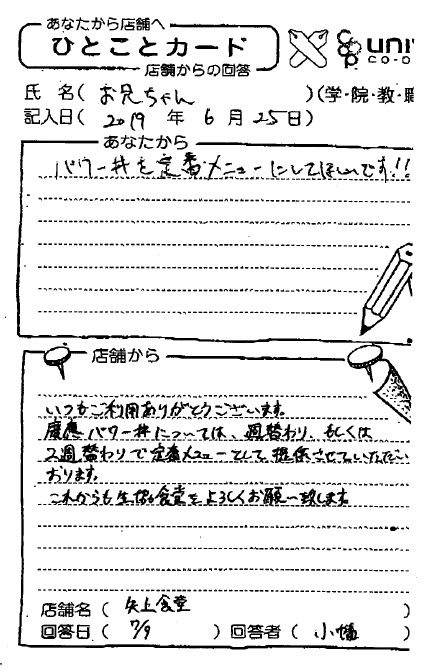 あなたから店舗へ
ひとことカード
店舗からの回答
UNIV
CO-O
氏 名( お兄ちゃん )(学・院・教・職
記入日( 2019 年 6 月 25日)
あなたから
パワー丼を定番メニューにしてほしいです!!
店舗から
いつもご利用ありがとうございます。
慶應パワー丼については、週替わり、もしくは
2週替わりで定番メニューとして、提供させていただいて
おります。
これからも生協食堂をよろしくお願い致します
店舗名( 矢上食堂 )
回答日( 7/9 ) 回答者( 小幡 )